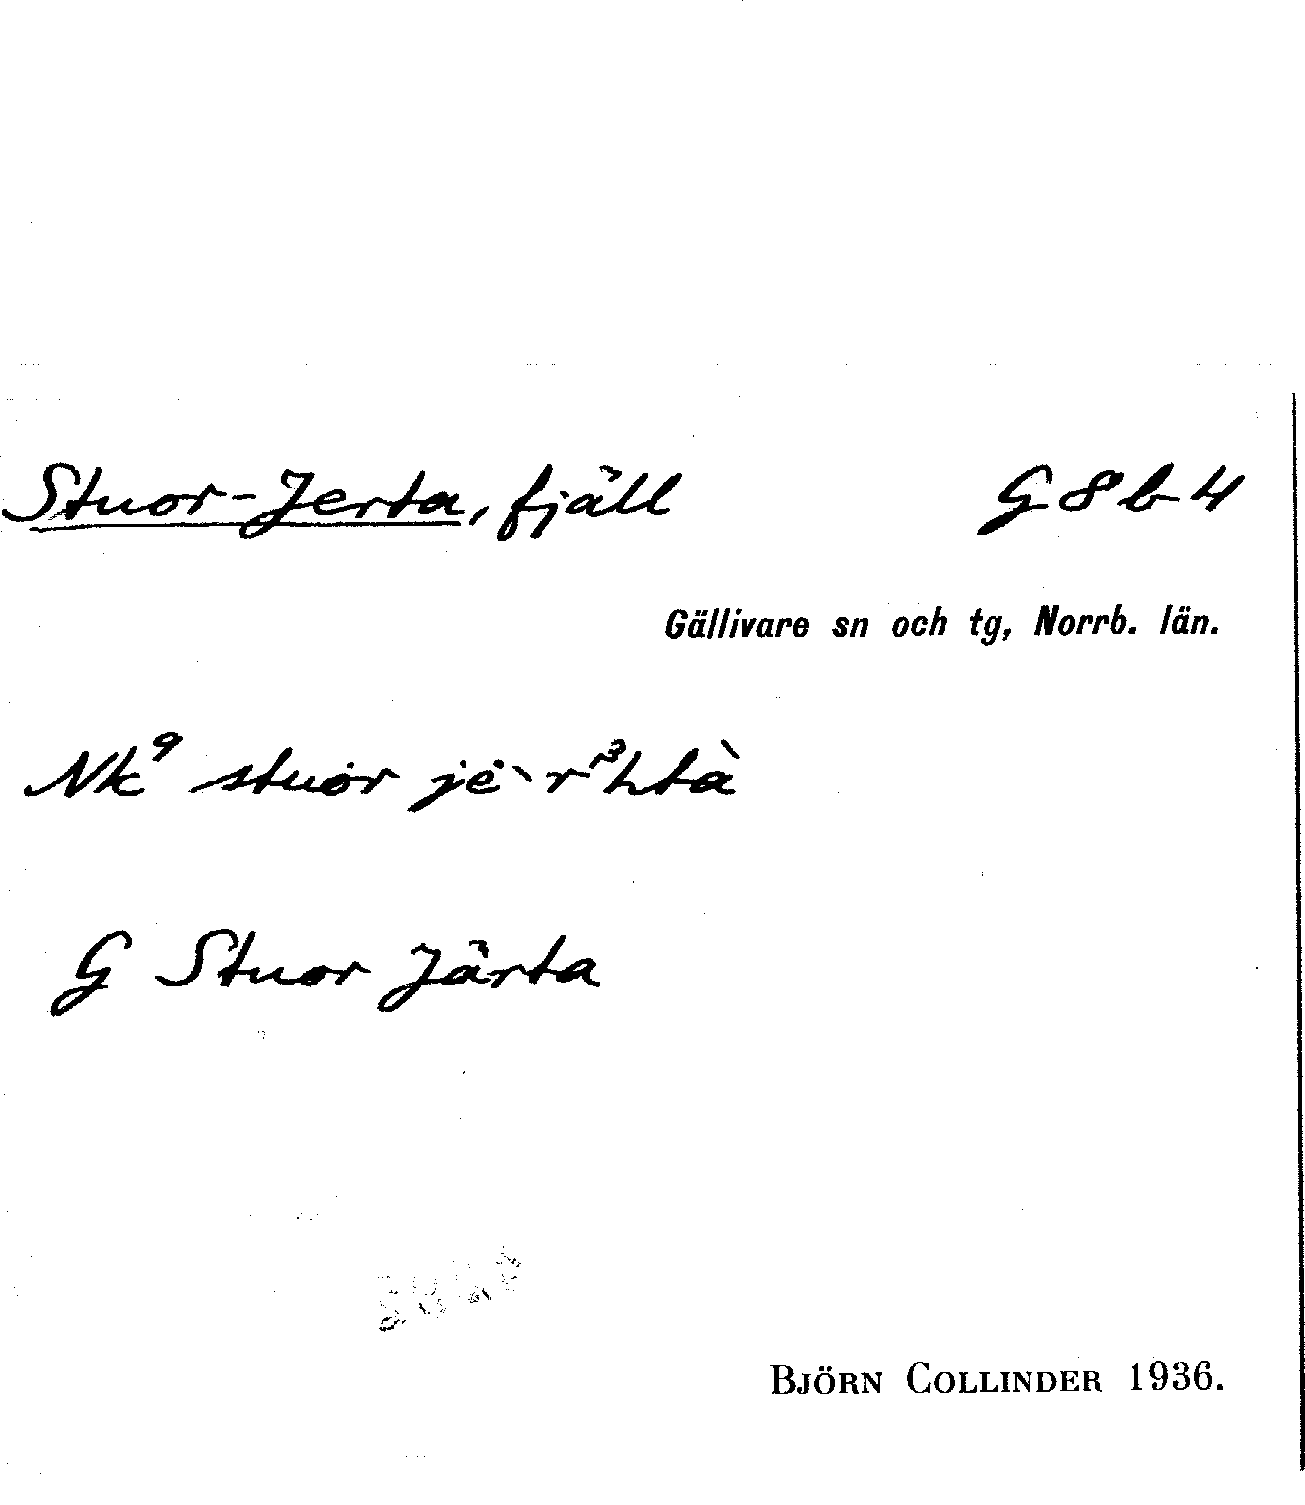 Stuor-Jerta, fjäll G 8 b 4
Gällivare sn och tg, Norrb. län.
Nk⁹ stuȯr jė`r³htà
G Stuor Järta
BJÖRN COLLINDER 1936.